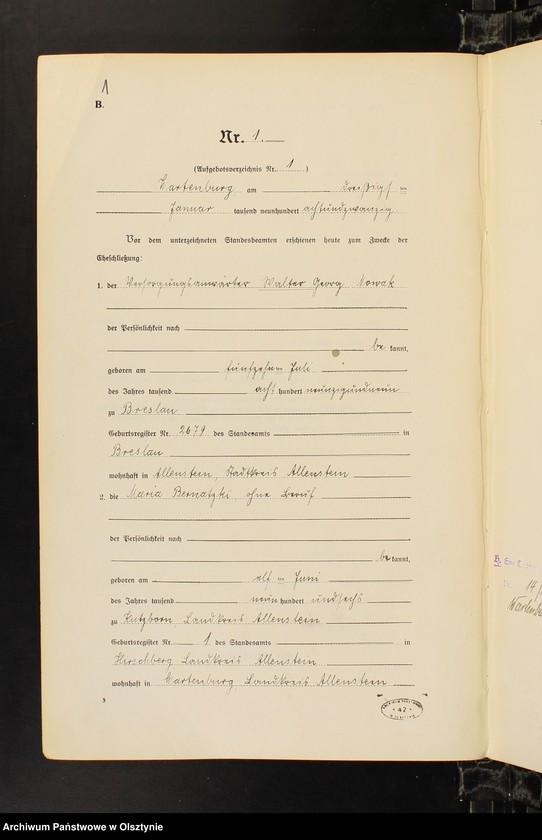 1
B.
Nr. 1.
(Aufgebotsverzeichnis Nr. 1 )
Wartenburg am dreißigs ten
Januar tausend neunhundert achtundzwanzig.
Vor dem unterzeichneten Standesbeamten erschienen heute zum Zwecke der
Eheschließung:
1. der Versorgungsanwärter Walter Georg Nowak
der Persönlichkeit nach
be kannt,
geboren am fünfzehn ten Juli
des Jahres tausend acht hundert neunzigundneun
zu Breslau
Geburtsregister Nr. 2679 des Standesamts in
Breslau
wohnhaft in Allenstein, Stadtkreis Allenstein
2. die Maria Bernatzki, ohne Beruf
der Persönlichkeit nach
be kannt,
geboren am elf ten Juni
des Jahres tausend neun hundert undsechs
zu Kutzborn Landkreis Allenstein
Geburtsregister Nr. 1 des Standesamts in
Hirschberg Landkreis Allenstein
wohnhaft in Wartenburg Landkreis Allenstein
42
14/
Archiwum Państwowe w Olsztynie